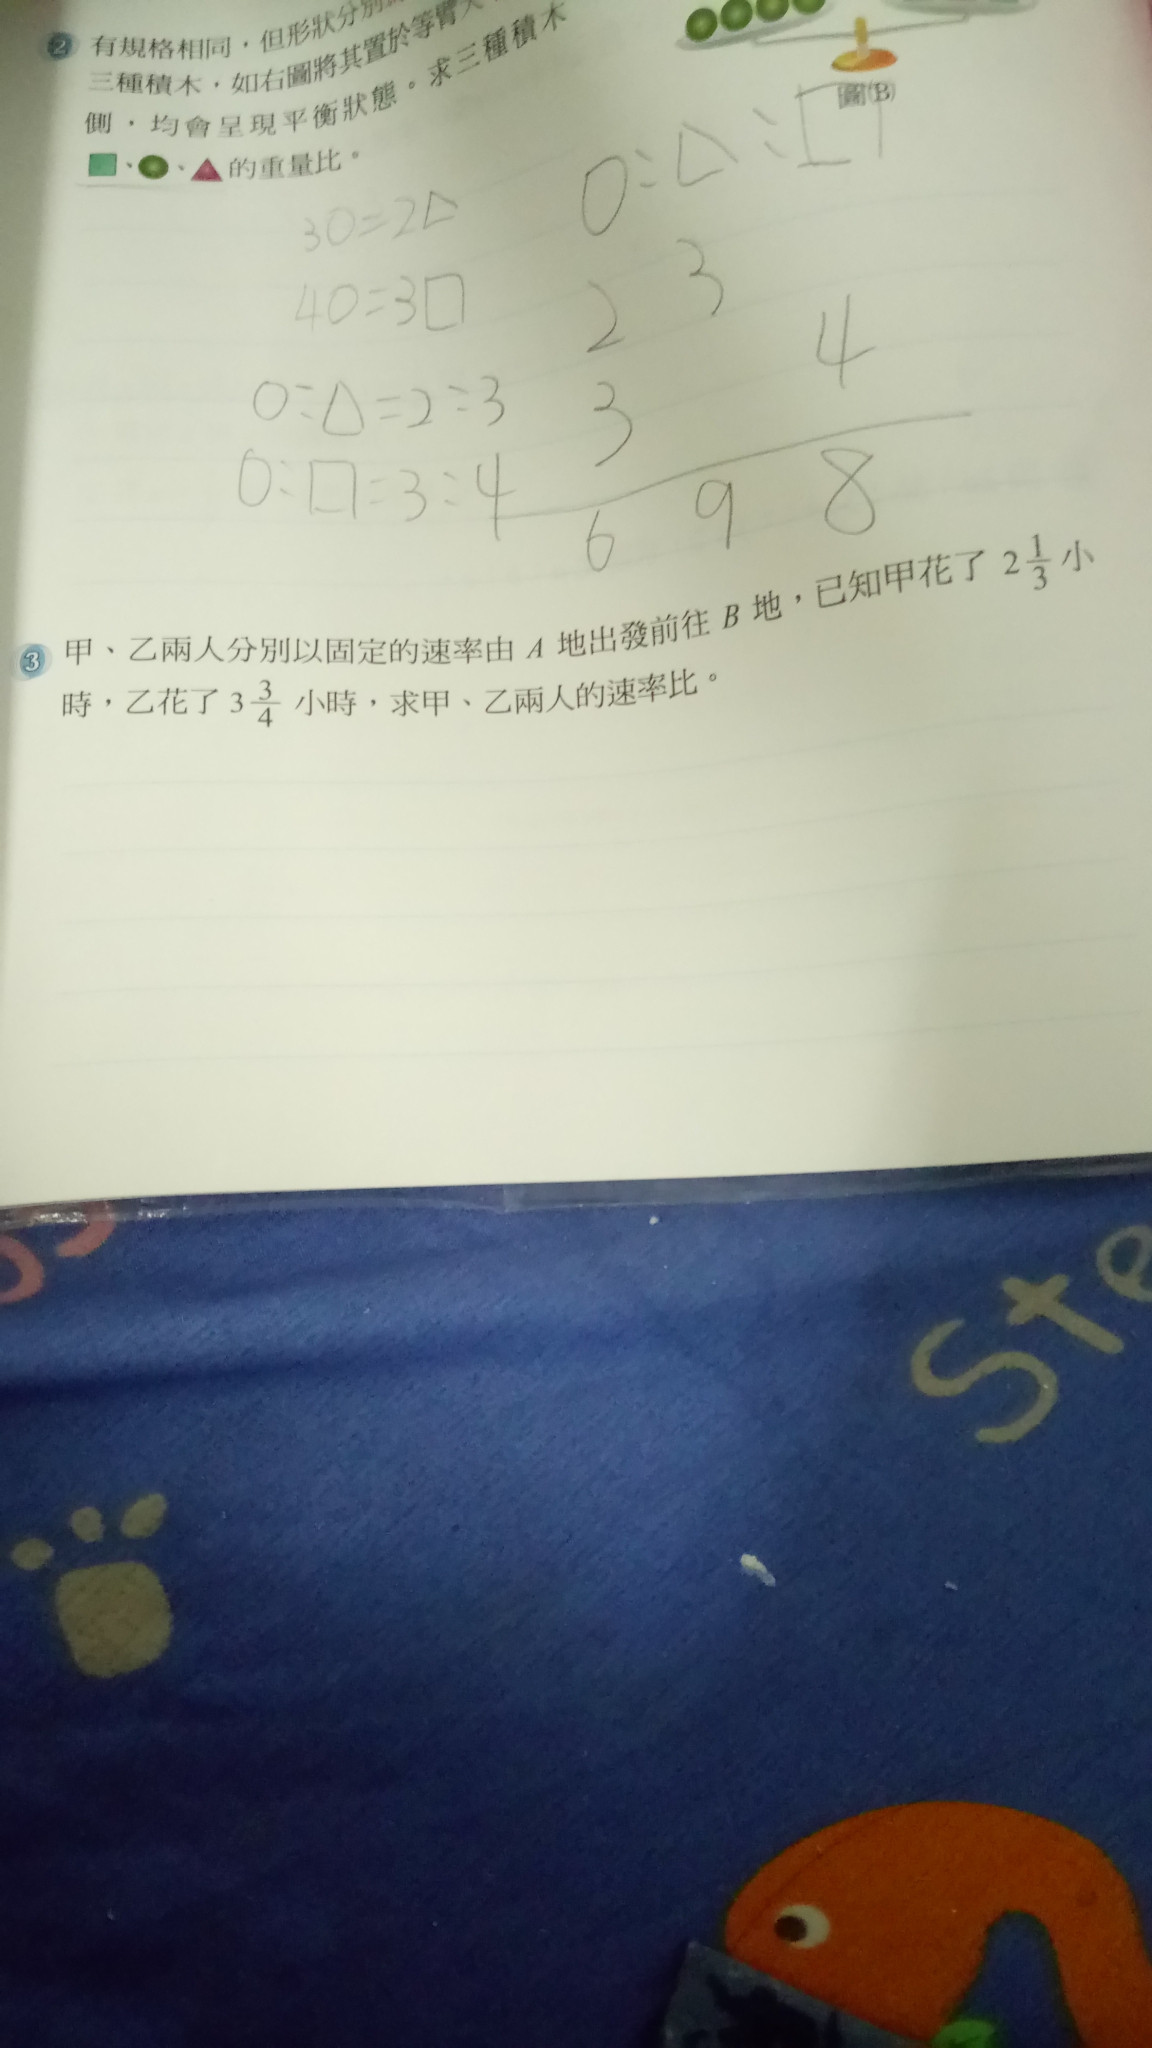 ② 有規格相同,但形狀分別
三種積木,如右圖將其置於等臂天
側,均會呈現平衡狀態。求三種積木
■、●、▲的重量比。
圖(B)
3○=2△
4○=3□
○:△=2:3
○:□=3:4
○:△:□
2 3
3 4
6 9 8
③ 甲、乙兩人分別以固定的速率由 A 地出發前往 B 地,已知甲花了 2 1/3 小
時,乙花了 3 3/4 小時,求甲、乙兩人的速率比。
Ste